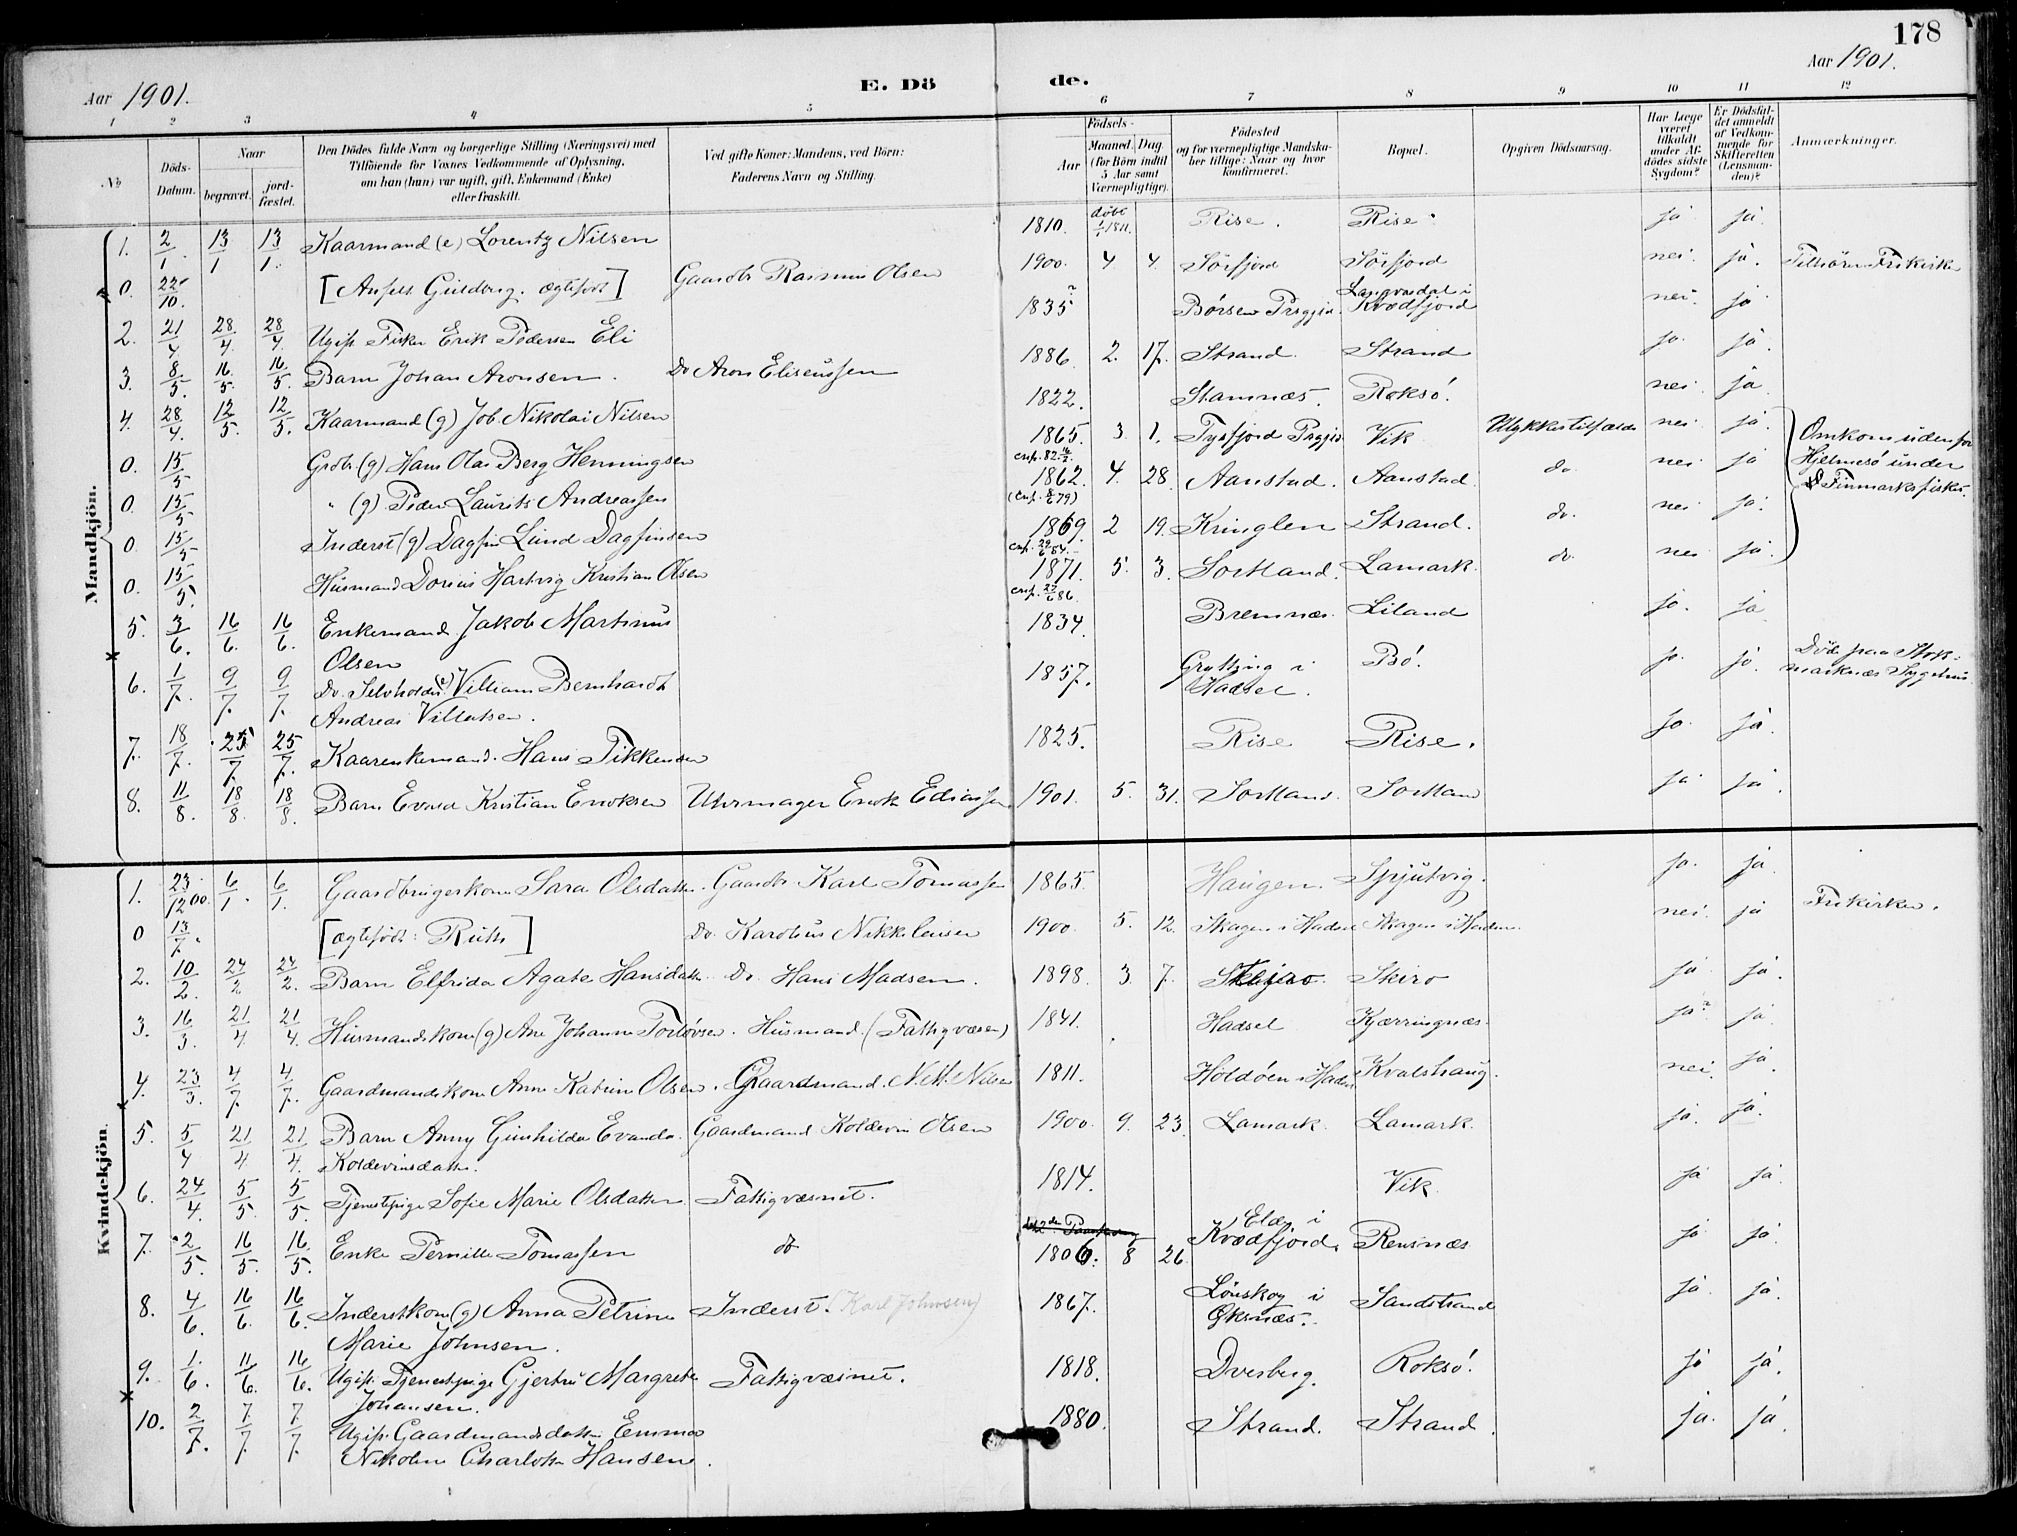 178
Aar 1901.
E. Dö
de.
Aar 1901.
1 2 3 4 5 6 7 8 9 10 11 12
No
Döds-Datum.
Naar
begravet.
jord-fæstet.
Den Dödes fulde Navn og borgerlige Stilling (Næringsvei) med
Tilföiende for Voxnes Vedkommende af Oplysning,
om han (hun) var ugift, gift, Enkemand (Enke)
eller fraskilt.
Ved gifte Koner: Mandens, ved Börn:
Faderens Navn og Stilling.
Födsels-
Aar
Maaned. Dag.
(for Börn indtil
5 Aar samt
Værnepligtige).
Födested
og for værnepligtige Mandska-
ber tillige: Naar og hvor
konfirmeret.
Bopæl.
Opgiven Dödsaarsag.
Har Læge
været
tilkaldt
under Af-
dödes sidste
Sygdom?
Er Dödsfal-
det anmeldt
af Vedkom-
mende for
Skifteretten
(Lensman-
den)?
Anmærkninger.
Mandkjön.
1. 2/1 13/1 13/1. Kaarmand (e) Lorentz Nilsen 1810. döbt 1811. Rise. Rise. ja ja.
0. 22/10. [Anfelt Guldberg. ægtefödt] Gaardb. Rasmus Olsen 1900. 4 4. Sörfjord Sörfjord nei. ja. Tilhörer Frikirke
2. 21/4 28/4. 28/4. Ugift Fisker Erik Pedersen Eli 1835? Börsen Prgjld. Langvasdal i Kvædfjord nei. ja
3. 8/5. 16/5. 16/5. Barn Johan Aronsen. Do Aron Eliseussen 1886. 2. 17. Strand. Strand ja. ja.
4. 28/4. 12/5. 12/5. Kaarmand (g) Job Nikolai Nilsen 1822. Stamnæs. Roksö. nei ja
0. 15/5 Grdbr. (g) Hans Olai Berg Henningsen 1865. 3. 1. Tysfjord Prgjld Vik Ulykkestilfælde nei ja.
cnf. 82 16/2.
Omkom udenfor
Hjelmesö under
Finmarksfisket.
0. 15/5 " (g) Peder Laurits Andreassen 1862. 4. 28. Aanstad. Aanstad. do. nei ja
(cnf. 79)
0. 15/5 Inderst (g) Dagfin Lund Dagfinsen 1869. 2 19. Kringlen Strand. do. nei ja.
cnf. 29/6 84.
0. 15/5. Husmand Dorius Hartvig Kristian Olsen 1871. 5. 3. Sortland. Lamark. do nei ja.
cnf. 27/6 86.
5. 3/6. 16/6. 16/6. Enkemand Jakob Martinus
Olsen 1834. Bremnæs. Liland ja. ja
6. 1/7. 9/7. 9/7. Do. Selvholder (e) Villiam Bernhardt
Andreas Villatsen. 1857. Grytting i Hadsel. Bö. ja. ja. Döde paa Stok-
marknæs Sygehus.
7. 18/7. 25/7 25/7. Kaarenkemand. Hans Pikkensen 1825. Rise Rise. ja. ja.
8. 11/8. 18/8 18/8. Barn Evald Kristian Enoksen Uhrmager Enok Ediassen 1901. 5. 31. Sortland. Sortland ja ja.
Kvindekjön.
1. 23/12 00. 6/1. 6/1. Gaardbrugerkone Sara Olsdatter. Gaardb. Karl Tomassen 1865. Haugen. Spjutvig. ja. ja
0 13/7. [ægtefödt: Ruth] Do. Karolius Nikkelaisen 1900. 5. 12. Skagen i Hadsel Skagen i Hadsel nei. ja Frikirken.
2. 10/2. 24/2 24/2. Barn Elfrida Agate Hansdatter Do. Hans Madsen. 1898. 3. 7. Skiro ja ja.
3. 16/3. 21/4 21/4. Husmandskone (g) Ane Johanne Torlövsen. Husmand (Fattigvæsen) 1841. Hadsel Kjærringnæs. ja? ja
4. 23/3. 4/7 4/7. Gaardmandskone Anne Katrine Olsen. Gaardmand. Nils Nilsen 1811. Höldöen i Hadsel Kvalshaug. nei. ja
5. 5/4 21/4 21/4. Barn Anny Gunhilda Evanda
Koldevinsdatter. Gaardmand Koldevin Olsen 1900. 9. 23. Lamark. Lamark. ja. ja.
6. 24/4. 5/5. 5/5. Tjenestpige Sofie Marie Olsdatter Fattigvæsnet. 1814. Vik. ja ja.
7. 2/5. 16/5. 16/5. Enke Pernille Tomassen do 1806. 8 26. Elde i Kvædfjord. Rensnæs ja ja.
8. 4/6. 16/6. 16/6. Inderstkone (g) Anna Petrine
Marie Johnsen. Inderst. (Karl Johnsen) 1867. Lönskog i Öksnæs. Sandstrand ja ja.
9. 1/6. 11/6. 16/6. Ugift Tjenestpige Gjertru Margrete
Johansen. Fattigvæsnet. 1818. Dverberg. Roksö. ja ja.
10. 2/7. 7/7 7/7. Ugift. Gaardmandsdatter Emma
Nikoline Charlotte Hansen. 1880. Strand. Strand. ja. ja